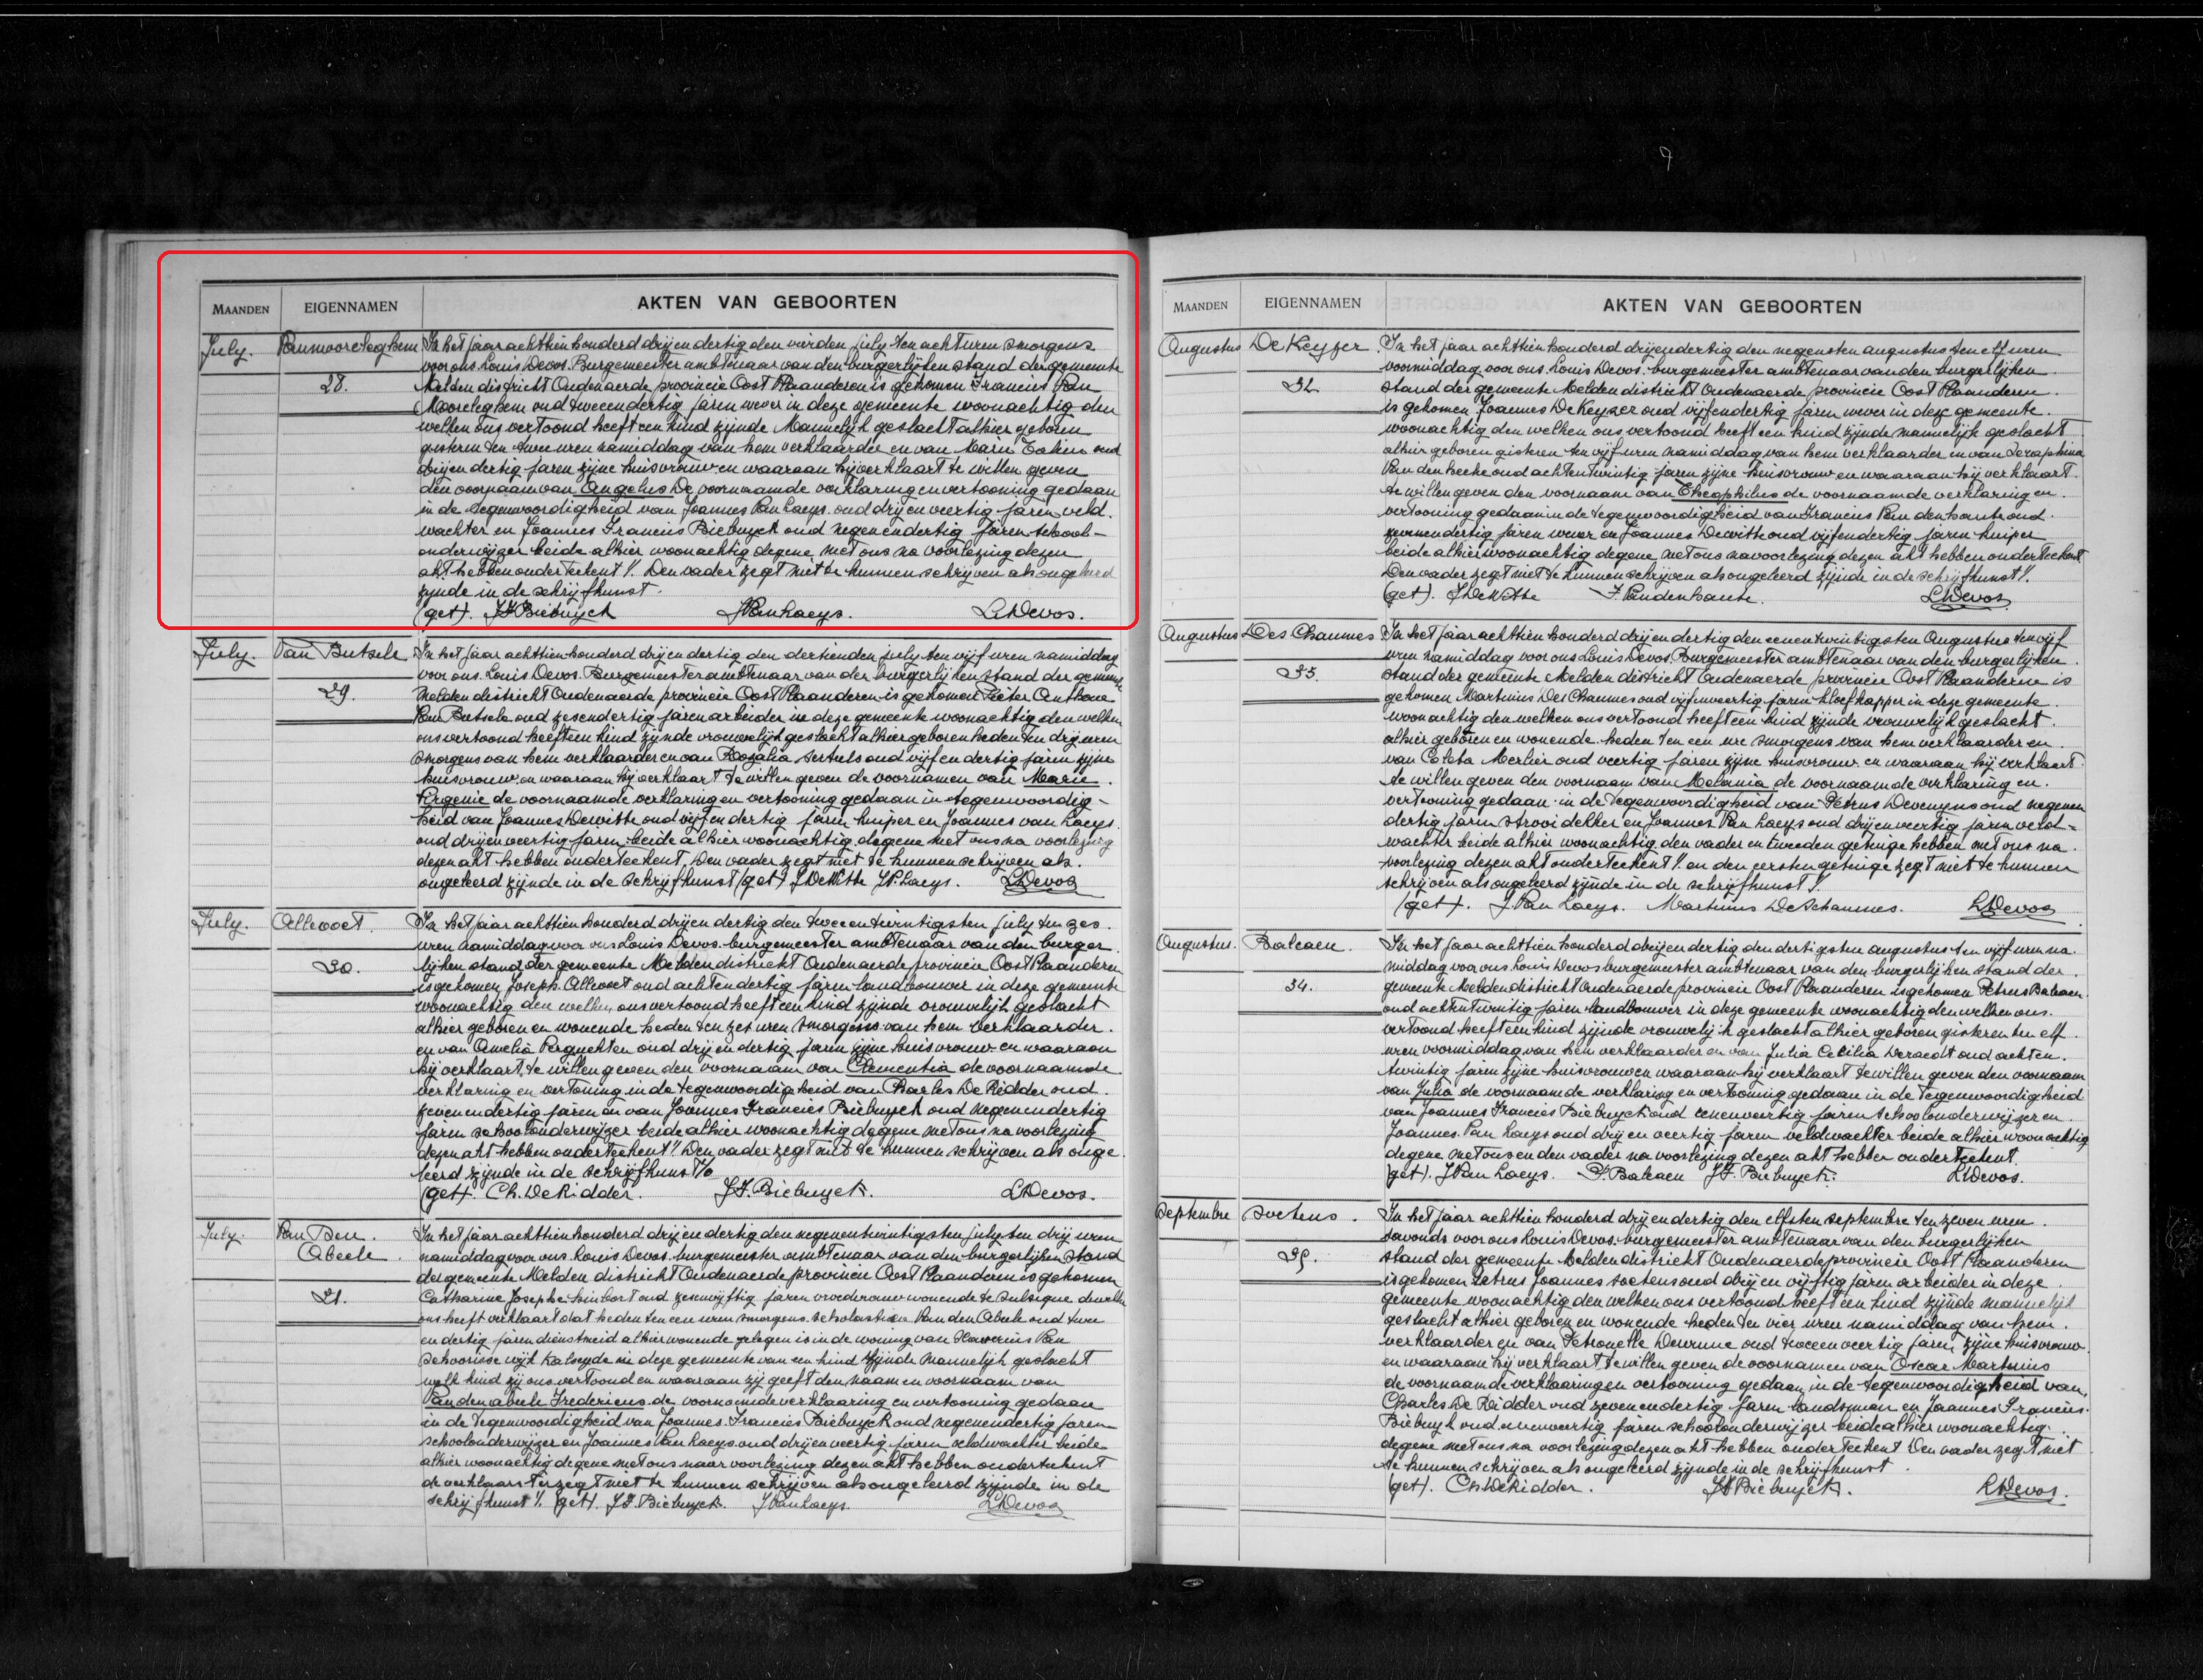 MAANDEN EIGENNAMEN AKTEN VAN GEBOORTEN
July. Vanmooreleghem In het jaar achttien honderd drij en dertig den vierden july ten acht uren smorgens
voor ons Louis Devos. Burgemeester ambtenaar van den burgerlijken stand der gemeente
28. Melden district Oudenaerde provincie Oost Vlaanderen is gekomen Francies Van
Mooreleghem oud tweeendertig jaren wever in deze gemeente woonachtig den
welken ons vertoond heeft een kind zijnde Mannelijk geslacht alhier geboren
gisteren ten twee uren namiddag van hem verklaarder en van Marie oud
drijendertig jaren zijne huisvrouw en waaraan hij verklaart te willen geven
den voornaam van Angelus De voornaamde verklaring en vertooning gedaan
in de tegenwoordigheid van Joannes Van Laeys oud drij en veertig jaren veld
wachter en Joannes Francies Biebuyck oud negenendertig jaren school-
onderwijzer beide alhier woonachtig degene met ons na voorlezing dezen
akt hebben onderteekent //. Den vader zegt niet te kunnen schrijven als ongeleerd
zijnde in de schrijfkunst.
(get). JF Biebuyck J Van Laeys. L. Devos.
July. Van Butsele In het jaar achttien honderd drij en dertig den dertienden july ten vijf uren namiddag
voor ons. Louis Devos. Burgemeester ambtenaar van der burgerlijken stand der gemeente
29. Melden district Oudenaerde provincie Oost Vlaanderen is gekomen Pieter
Van Butsele oud zesendertig jaren arbeider in deze gemeente woonachtig den welken
ons vertoond heeft een kind zijnde vrouwelijk geslacht alhier geboren heden ten drij uren
smorgens van hem verklaarder en van Rozalia oud vijf en dertig jaren zijne
huisvrouw. en waaraan hij verklaart te willen geven de voornamen van Marie
Virgenie de voornaamde verklaring en vertooning gedaan in tegenwoordig-
heid van Joannes Dewitte oud vijf en dertig jaren kuiper en Joannes van Laeys
oud drijenveertig jaren beide alhier woonachtig degene met ons na voorlezing
dezen akt hebben onderteekent. Den vader zegt niet te kunnen schrijven als.
ongeleerd zijnde in de schrijfkunst (get) J De Witte J V. Laeys. L Devos
July. Allevoet. In het jaar achttien honderd drij en dertig den tweeentwintigsten july ten zes.
uren namiddag voor ons Louis Devos. burgemeester ambtenaar van den burger
30. lijken stand der gemeente Melden district Oudenaerde provincie Oost Vlaanderen
is gekomen Joseph. Allevoet oud achtendertig jaren landbouwer in deze gemeente
woonachtig den welken, ons vertoond heeft een kind zijnde vrouwelijk geslacht
alhier geboren en wonende heden ten zes uren smorgens van hem verklaarder.
en van Amelia oud drij en dertig jaren zijne huisvrouw en waaraan
hij verklaart te willen geven den voornaam van Clementia de voornaamde
verklaring en vertoning in de tegenwoordigheid van Charles De Ridder oud.
zeven en dertig jaren en van Joannes Francies Biebuyck oud negenendertig
jaren schoolonderwijzer beide alhier woonachtig degene met ons na voorlezing
dezen akt hebben onderteekent //. Den vader zegt niet te kunnen schrijven als onge
leerd zijnde in de schrijfkunst %
(get). Ch. De Ridder. J F. Biebuyck. L Devos.
July. Van Den In het jaar achttien honderd drij en dertig den negenentwintigsten july ten drij uren
Abeele. namiddag voor ons. Louis Devos. burgemeester ambtenaar van den burgerlijken stand
der gemeente Melden district Oudenaerde provincie Oost Vlaanderen is gekomen
31. Catharine Josephe oud zesenvijftig jaren vroedvrouw wonende te Sulsique dewelke
ons heeft verklaart dat heden ten een uren smorgens. Scholastica Van den Abeele oud twee
en dertig jaren dienstmeid alhier wonende gelegen is in de woning van Van
Schoorisse wijk in deze gemeente van een kind zijnde mannelijk geslacht
welk kind zij ons vertoond en waaraan zij geeft den naam en voornaam van
Van den abeele Fredericus de voornoemde verklaring en vertooning gedaan
in de tegenwoordigheid van Joannes. Francies Biebuyck oud negenendertig jaren
schoolonderwijzer en Joannes Van Laeys oud drij en veertig jaren veldwachter beide
alhier woonachtig degene met ons naar voorlezing dezen akt hebben onderteekent
de verklaarster zegt niet te kunnen schrijven als ongeleerd zijnde in de
schrijfkunst //. (get). J F. Biebuyck. J Van Laeys. L Devos
MAANDEN EIGENNAMEN AKTEN VAN GEBOORTEN
Augustus De Keyzer. In het jaar achttien honderd drijendertig den negensten augustus ten elf uren
voormiddag voor ons. Louis Devos. burgemeester ambtenaar van den burgerlijken
32. stand der gemeente Melden district Oudenaerde provincie Oost Vlaanderen.
is gekomen Joannes De Keyzer oud vijfendertig jaren wever in deze gemeente.
woonachtig den welken ons vertoond heeft een kind zijnde mannelijk geslacht
alhier geboren gisteren ten vijf uren namiddag van hem verklaarder en van Seraphina
Van den hecke oud achtentwintig jaren zijne huisvrouw en waaraan hij verklaart.
te willen geven den voornaam van Theophilus de voornaamde verklaring en.
vertooning gedaan in de tegenwoordigheid van Francies Van den haute oud.
zevenendertig jaren wever en Joannes Dewitte oud vijfendertig jaren kuiper
beide alhier woonachtig degene met ons na voorlezing dezen akt hebben onderteekent
Den vader zegt niet te kunnen schrijven als ongeleerd zijnde in de schrijfkunst //.
(get). J De Witte F. Vandenhaute. L Devos
Augustus Des Chaumes In het jaar achttien honderd drij en dertig den eenentwintigsten Augustus ten vijf
uren namiddag voor ons Louis Devos. Burgemeester ambtenaar van den burgerlijken.
33. stand der gemeente Melden district Oudenaerde provincie Oost Vlaanderen is
gekomen Martinus Des Chaumes oud vijfenveertig jaren kloefkapper in deze gemeente.
woonachtig den welken ons vertoond heeft een kind zijnde vrouwelijk geslacht.
alhier geboren en wonende heden ten een ure smorgens van hem verklaarder en.
van Coleta Merlier oud veertig jaren zijne huisvrouw en waaraan hij verklaart
te willen geven den voornaam van Melania de voornaamde verklaring en.
vertooning gedaan in de tegenwoordigheid van Pétrus Devenyns oud negenen
dertig jaren strooidekker en Joannes Van Laeys oud drij en veertig jaren veld-
wachter beide alhier woonachtig, den vader en tweeden getuige hebben met ons na.
voorlezing dezen akt onderteekent //. en den eersten getuige zegt niet te kunnen
schrijven als ongeleerd zijnde in de schrijfkunst //.
(get). J Van Laeys. Martinus De Schaumes. L Devos
Augustus. Balcaen. In het jaar achttien honderd drijendertig den dertigsten augustus ten vijf uren na.
middag voor ons Louis Devos burgemeester ambtenaar van den burgerlijken stand der.
34. gemeente Melden district Oudenaerde provincie Oost Vlaanderen is gekomen Pétrus Balcaen.
oud achtentwintig jaren landbouwer in deze gemeente woonachtig den welken ons.
vertoond heeft een kind zijnde vrouwelijk geslacht alhier geboren gisteren ten elf.
uren voormiddag van hem verklaarder en van Julia Cecilia oud achten.
twintig jaren zijne huisvrouw en waaraan hij verklaart te willen geven den voornaam
van Julia de voornaamde verklaring en vertooning gedaan in de tegenwoordigheid
van Joannes Francies Biebuyck oud jaren schoolonderwijzer en.
Joannes. Van Laeys oud drij en veertig jaren veldwachter beide alhier woonachtig
degene met ons en den vader na voorlezing dezen akt hebben onderteekent.
(get). J Van Laeys. P. Balcaen J F. Biebuyck. L Devos.
Septembre Soetens. In het jaar achttien honderd drij en dertig den elfsten septembre ten zeven uren.
savonds voor ons Louis Devos. burgemeester ambtenaar van den burgerlijken
35. stand der gemeente Melden district Oudenaerde provincie Oost Vlaanderen
is gekomen Petrus Joannes Soetens oud drij en vijftig jaren arbeider in deze.
gemeente woonachtig den welken ons vertoond heeft een kind zijnde mannelijk
geslacht alhier geboren en wonende heden ten vier uren namiddag van hem.
verklaarder en van Petronelle oud tweeenveertig jaren zijne huisvrouw.
en waaraan hij verklaart te willen geven de voornamen van Oscar Martinus
de voornaamde verklaaring en vertooning gedaan in de tegenwoordigheid van,
Charles De Ridder oud zeven en dertig jaren landsman en Joannes Francies.
Biebuyck oud jaren schoolonderwijzer beide alhier woonachtig.
degene met ons na voorlezing dezen akt hebben onderteekent Den vader zegt niet
te kunnen schrijven als ongeleerd zijnde in de schrijfkunst.
(get). Ch De Ridder. J F Biebuyck. L Devos.